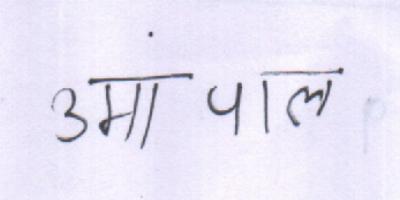 उमां पाल